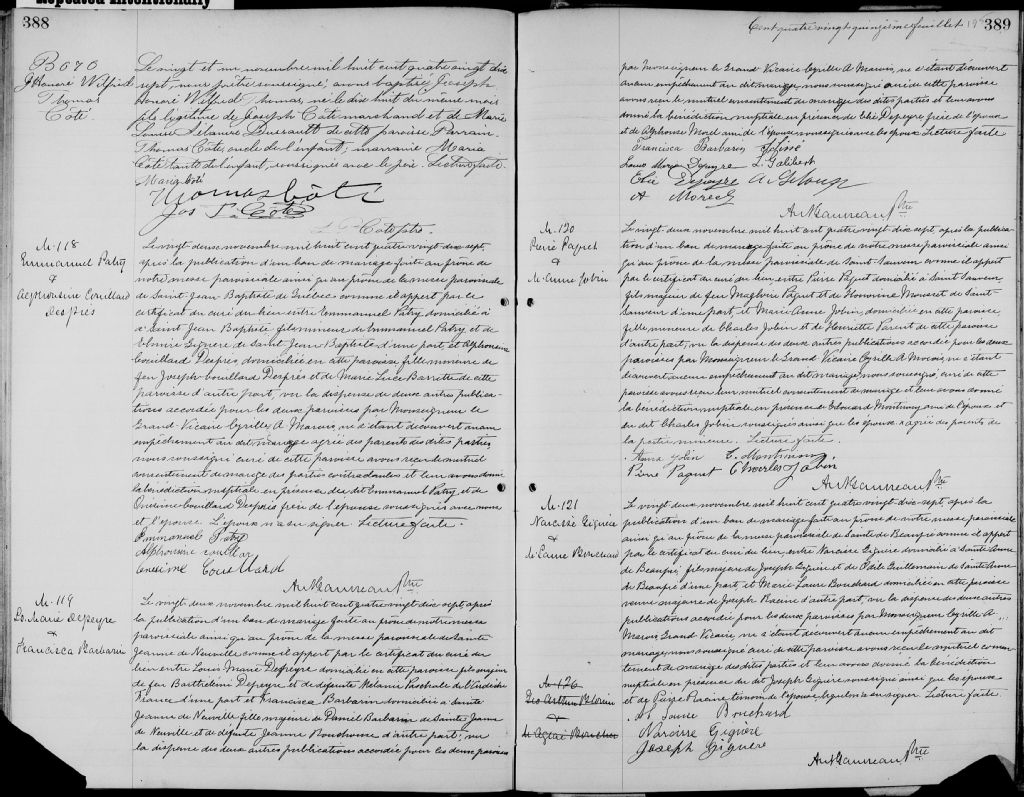 Repeated Intentionally
388
B670
J Honoré Wilfrid
Thomas
Côté.
Le vingt et un novembre mil huit cent quatre vingt dix
sept, nous prêtre soussigné, avons baptisé Joseph
Honoré Wilfrid Thomas, né le dix huit du même mois
fils légitime de Joseph Côté marchand et de Marie
Louise Dussault de cette paroisse. Parrain
Thomas Côté, oncle de l'enfant; marraine Maria
Côté tante de l'enfant, soussignés avec le père. Lecture faite.
Maria Côté
Thomas Côté
Jos P. Côté
Côté ptre.
M-118
Emmanuel Patry
&
Alphonsine Couillard
Després
Le vingt deux novembre mil huit cent quatre vingt dix sept,
après la publication d'un ban de mariage faite au prône de
notre messe paroissiale ainsi qu'au prône de la messe paroissiale
de Saint Jean Baptiste de Québec comme il appert par le
certificat du curé du lieu entre Emmanuel Patry domicilié à
St Saint Jean Baptiste fils mineur de Emmanuel Patry et de
Elmire Giguère de Saint Jean Baptiste d'une part, et Alphonsine
Couillard Després, domiciliée en cette paroisse fille mineure de
feu Joseph Couillard Després et de Marie Luce Barrette de cette
paroisse d'autre part, vu la dispense de deux autres publica-
tions accordée pour les deux paroisses par Monseigneur le
Grand-Vicaire Cyrille A. Marois, ne s'étant découvert aucun
empêchement au dit mariage agréé des parents des dites parties,
nous soussigné curé de cette paroisse avons reçu le mutuel
consentement de mariage des parties contractantes et leur avons donné
la bénédiction nuptiale en présence du dit Emmanuel Patry, et de
Onésime Couillard Després frère de l'épouse soussignés avec nous
et l'épouse. L'époux n'a su signer. Lecture faite.
Emmanuel Patry
Alphonsine Couillard
Onésime Couillard
Ptre
M-119
Ls. Marie Depeyre
&
Francisca Barbarin
Le vingt deux novembre mil huit cent quatre vingt dix sept, après
la publication d'un ban de mariage faite au prône de notre messe
paroissiale ainsi qu'au prône de la messe paroissiale de Sainte
Jeanne de Neuville comme il appert par le certificat du curé du
lieu entre Louis Marie Depeyre domicilié en cette paroisse fils majeur
de feu Barthélémi Depeyre et de défunte Mélanie Paschale de
France d'une part et Francisca Barbarin domiciliée à Sainte
Jeanne de Neuville fille majeure de Daniel Barbarin de Sainte Jeanne
de Neuville et de défunte Jeanne d'autre part; vu
la dispense des deux autres publications accordée pour les deux paroisses
Cent quatre vingt quinzième feuillet 195
389
par Monseigneur le Grand Vicaire Cyrille A Marois, ne s'étant découvert
aucun empêchement au dit mariage, nous soussigné curé de cette paroisse
avons reçu le mutuel consentement de mariage des dites parties et leur avons
donné la bénédiction nuptiale en présence de Elie Depeyre frère de l'époux
et de Alphonse Morel ami de l'époux soussignés avec les époux. Lecture faite
Francisca Barbarin
Louis Marie Depeyre L. Galibert
Elie Depeyre
A Morel
Ptre
M-120
Pierre Paquet
&
M. Anna Jobin
Le vingt deux novembre mil huit cent quatre vingt dix sept, après la publica-
tion d'un ban de mariage faite au prône de notre messe paroissiale ainsi
qu'au prône de la messe paroissiale de Saint-Sauveur comme il appert
par le certificat du curé du lieu, entre Pierre Paquet domicilié à Saint Sauveur
fils majeur de feu Magloire Paquet et de Honorine de Saint-
Sauveur d'une part, et Marie Anne Jobin, domiciliée en cette paroisse
fille mineure de Charles Jobin et de Henriette Parent de cette paroisse
d'autre part, vu la dispense des deux autres publications accordée pour les deux
paroisses par Monseigneur le Grand Vicaire Cyrille A. Marois, ne s'étant
découvert aucun empêchement au dit mariage, nous soussigné, curé de cette
paroisse avons reçu leur mutuel consentement de mariage et leur avons donné
la bénédiction nuptiale en présence de Edouard Montminy ami de l'époux et
du dit Charles Jobin soussignés ainsi que les époux agréé des parents de
la partie mineure. Lecture faite.
Anna Jobin E. Montminy
Pierre Paquet Charles Jobin
Ptre
M-121
Narcisse Giguère
&
M. Louise Bouchard
Le vingt deux novembre mil huit cent quatre vingt dix-sept, après la
publication d'un ban de mariage faite au prône de notre messe paroissiale
ainsi qu'au prône de la messe paroissiale de Sainte Anne de Beaupré comme il appert
par le certificat du curé du lieu, entre Narcisse Giguère domicilié à Sainte Anne
de Beaupré, fils majeur de Joseph Giguère et de Odile Guillemain de Sainte Anne
de Beaupré d'une part, et Marie Louise Bouchard domiciliée en cette paroisse
veuve majeure de Joseph Racine d'autre part, vu la dispense des deux autres
publications accordée pour les deux paroisses par Monseigneur Cyrille A.
Marois Grand Vicaire, ne s'étant découvert aucun empêchement au dit
mariage, nous soussigné curé de cette paroisse avons reçu le mutuel consen-
tement de mariage des dites parties et leur avons donné la bénédiction
nuptiale en présence du dit Joseph Giguère soussigné ainsi que les époux
et de Racine témoin de l'épouse, lequel n'a su signer. Lecture faite.
M. Louise Bouchard
Narcisse Giguère
Joseph Giguère
Ptre
M-120
&
Boucher